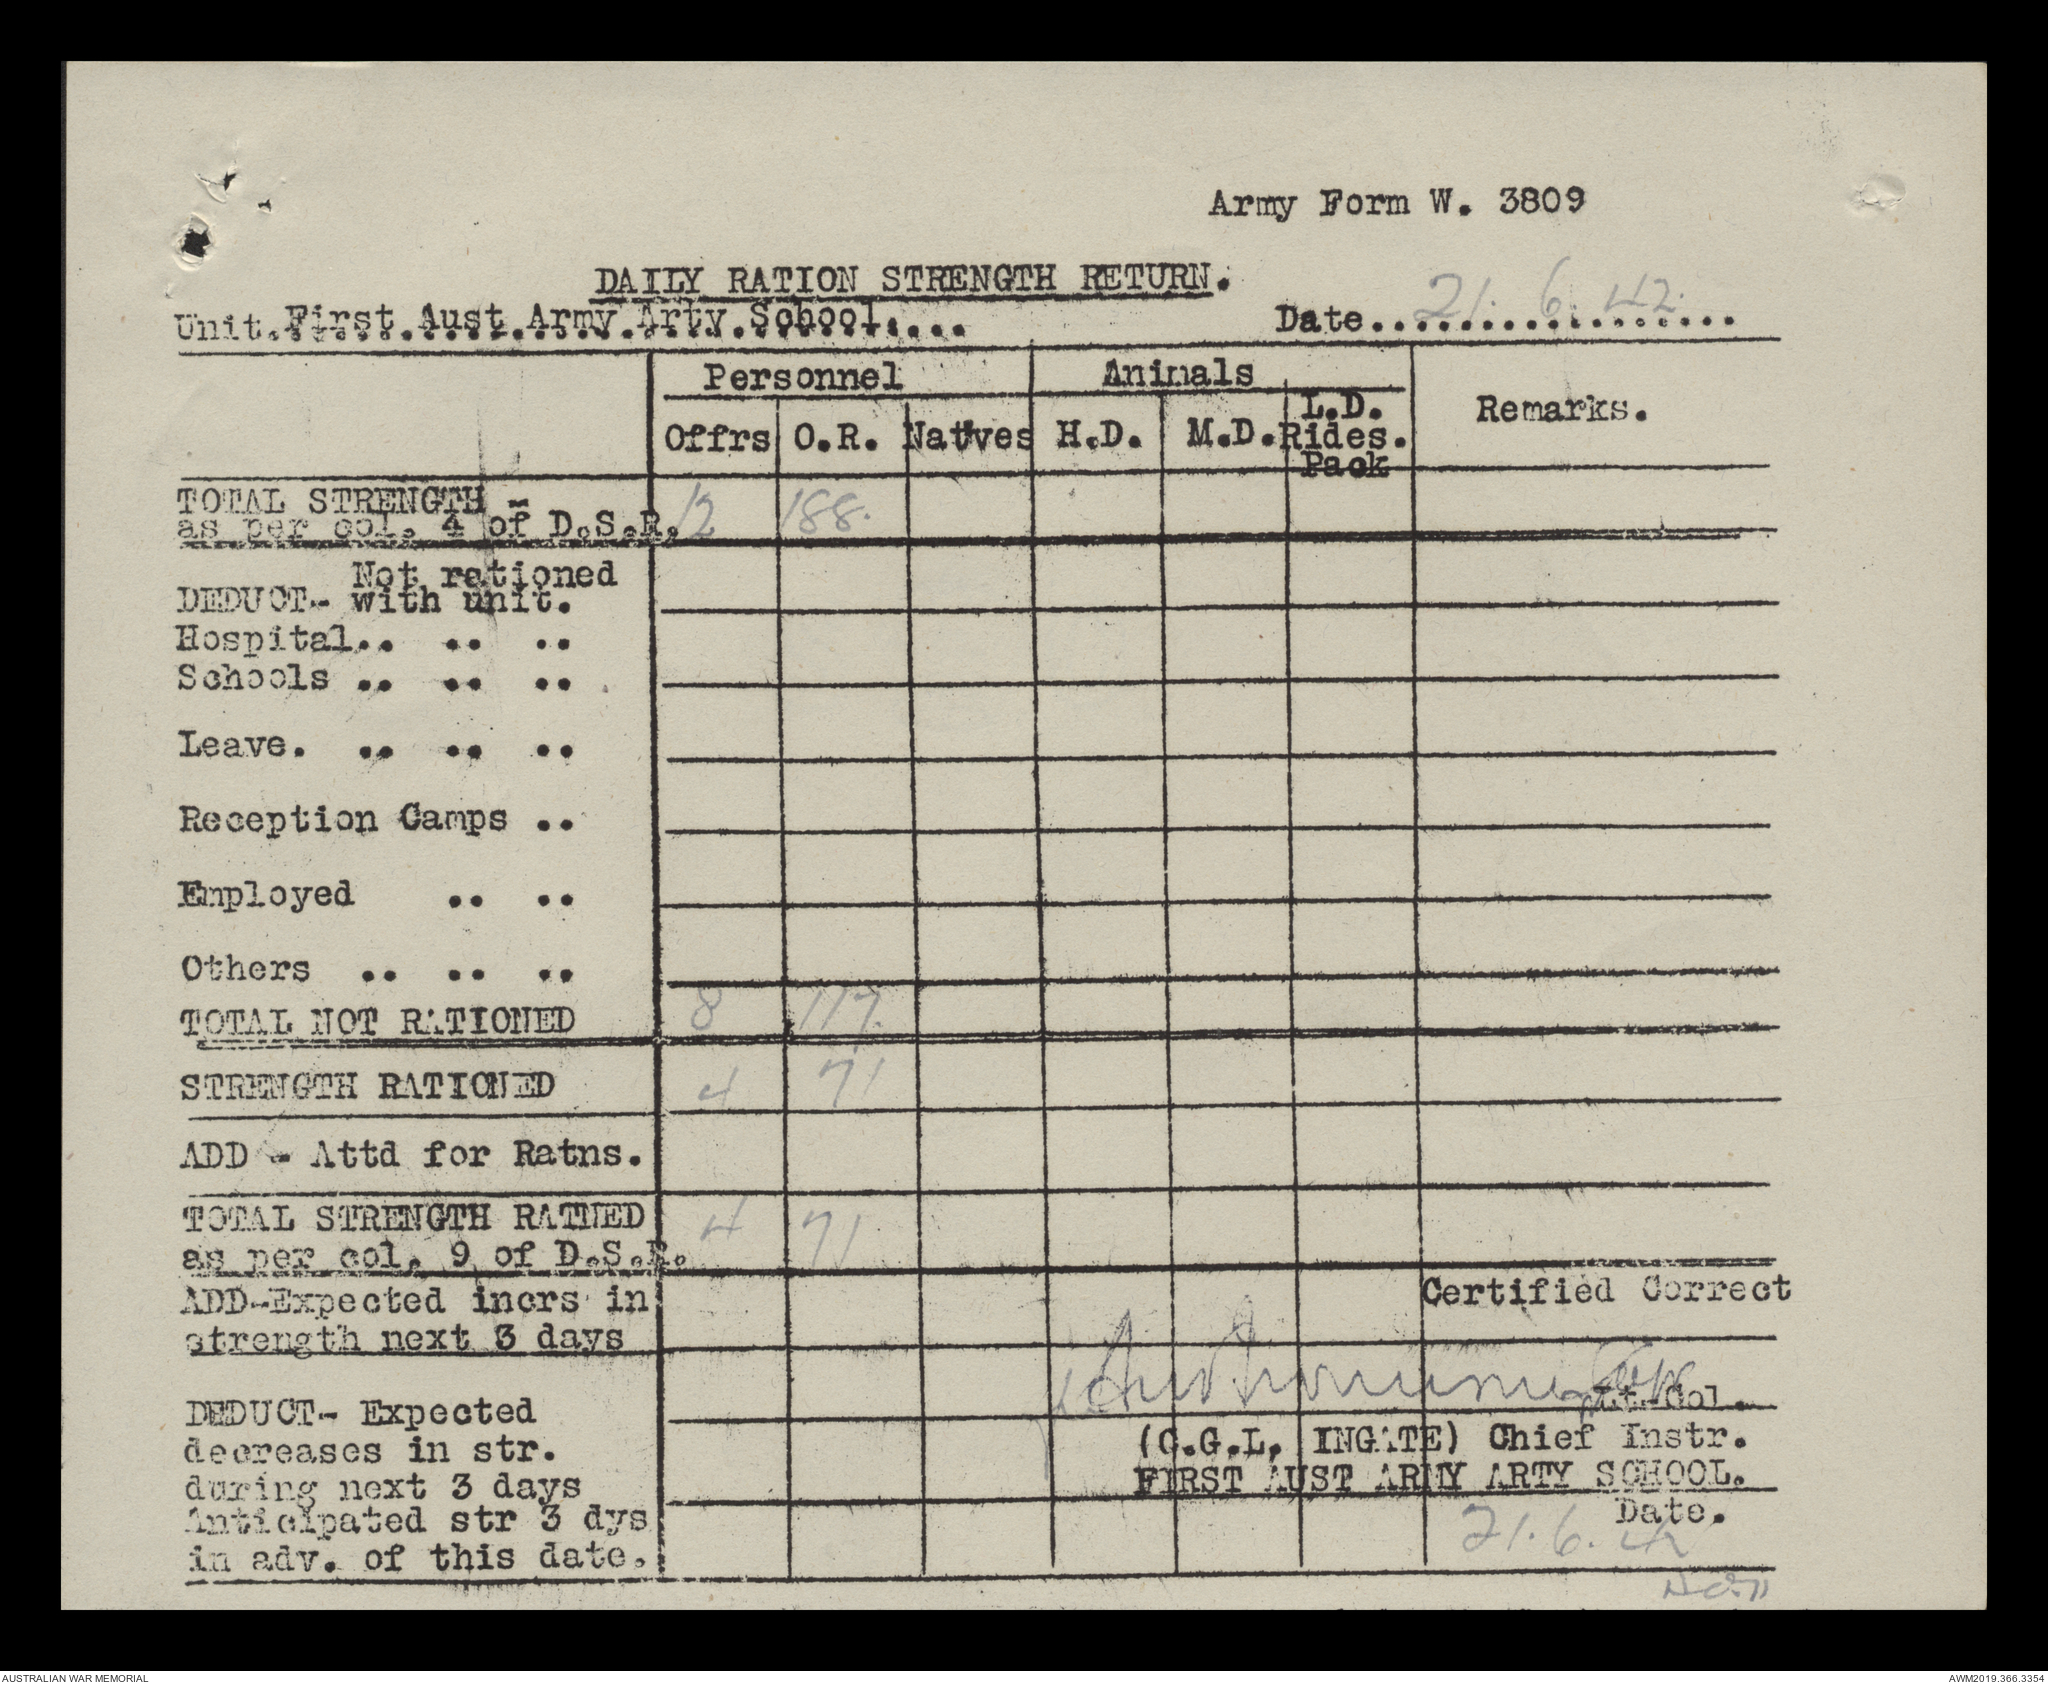 Army Form W. 3809
DAILY RATION STRENGTH RETURN.
Unit. First Aust Army Arty School.... Date.. 21. 6. 42.
Personnel Animals Remarks.
Offrs O.R. Natives H.D. M.D. L.D. Rides. Pack
TOTAL STRENGTH -
as per col. 4 of D.S.R. 12 188.
Not rationed
DEDUCT- with unit.
Hospital.. .. ..
Schools .. .. ..
Leave. .. .. ..
Reception Camps ..
Employed .. ..
Others .. .. ..
TOTAL NOT RATIONED 8 117.
STRENGTH RATIONED 4 71
ADD - Attd for Ratns.
TOTAL STRENGTH RATNED 4 71
as per col. 9 of D.S.R.
ADD-Expected incrs in Certified Correct
strength next 3 days
Lt-Col.
DEDUCT- Expected
decreases in str. (C.G.L. INGATE) Chief Instr.
during next 3 days FIRST AUST ARMY ARTY SCHOOL.
Anticipated str 3 dys Date.
in adv. of this date. 21. 6. 42
AUSTRALIAN WAR MEMORIAL AWM2019.366.3354